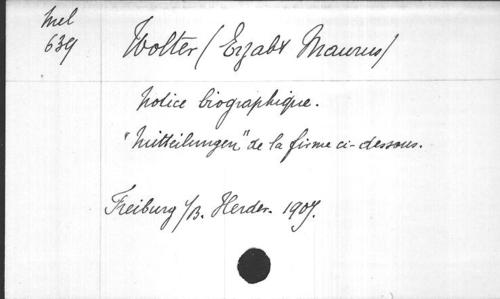 Mel
639
Wolter (Erzabt Maurus)
Notice biographique.
"Mitteilungen" de la firme ci-dessous.
Freiburg i/B. Herder. 1907.